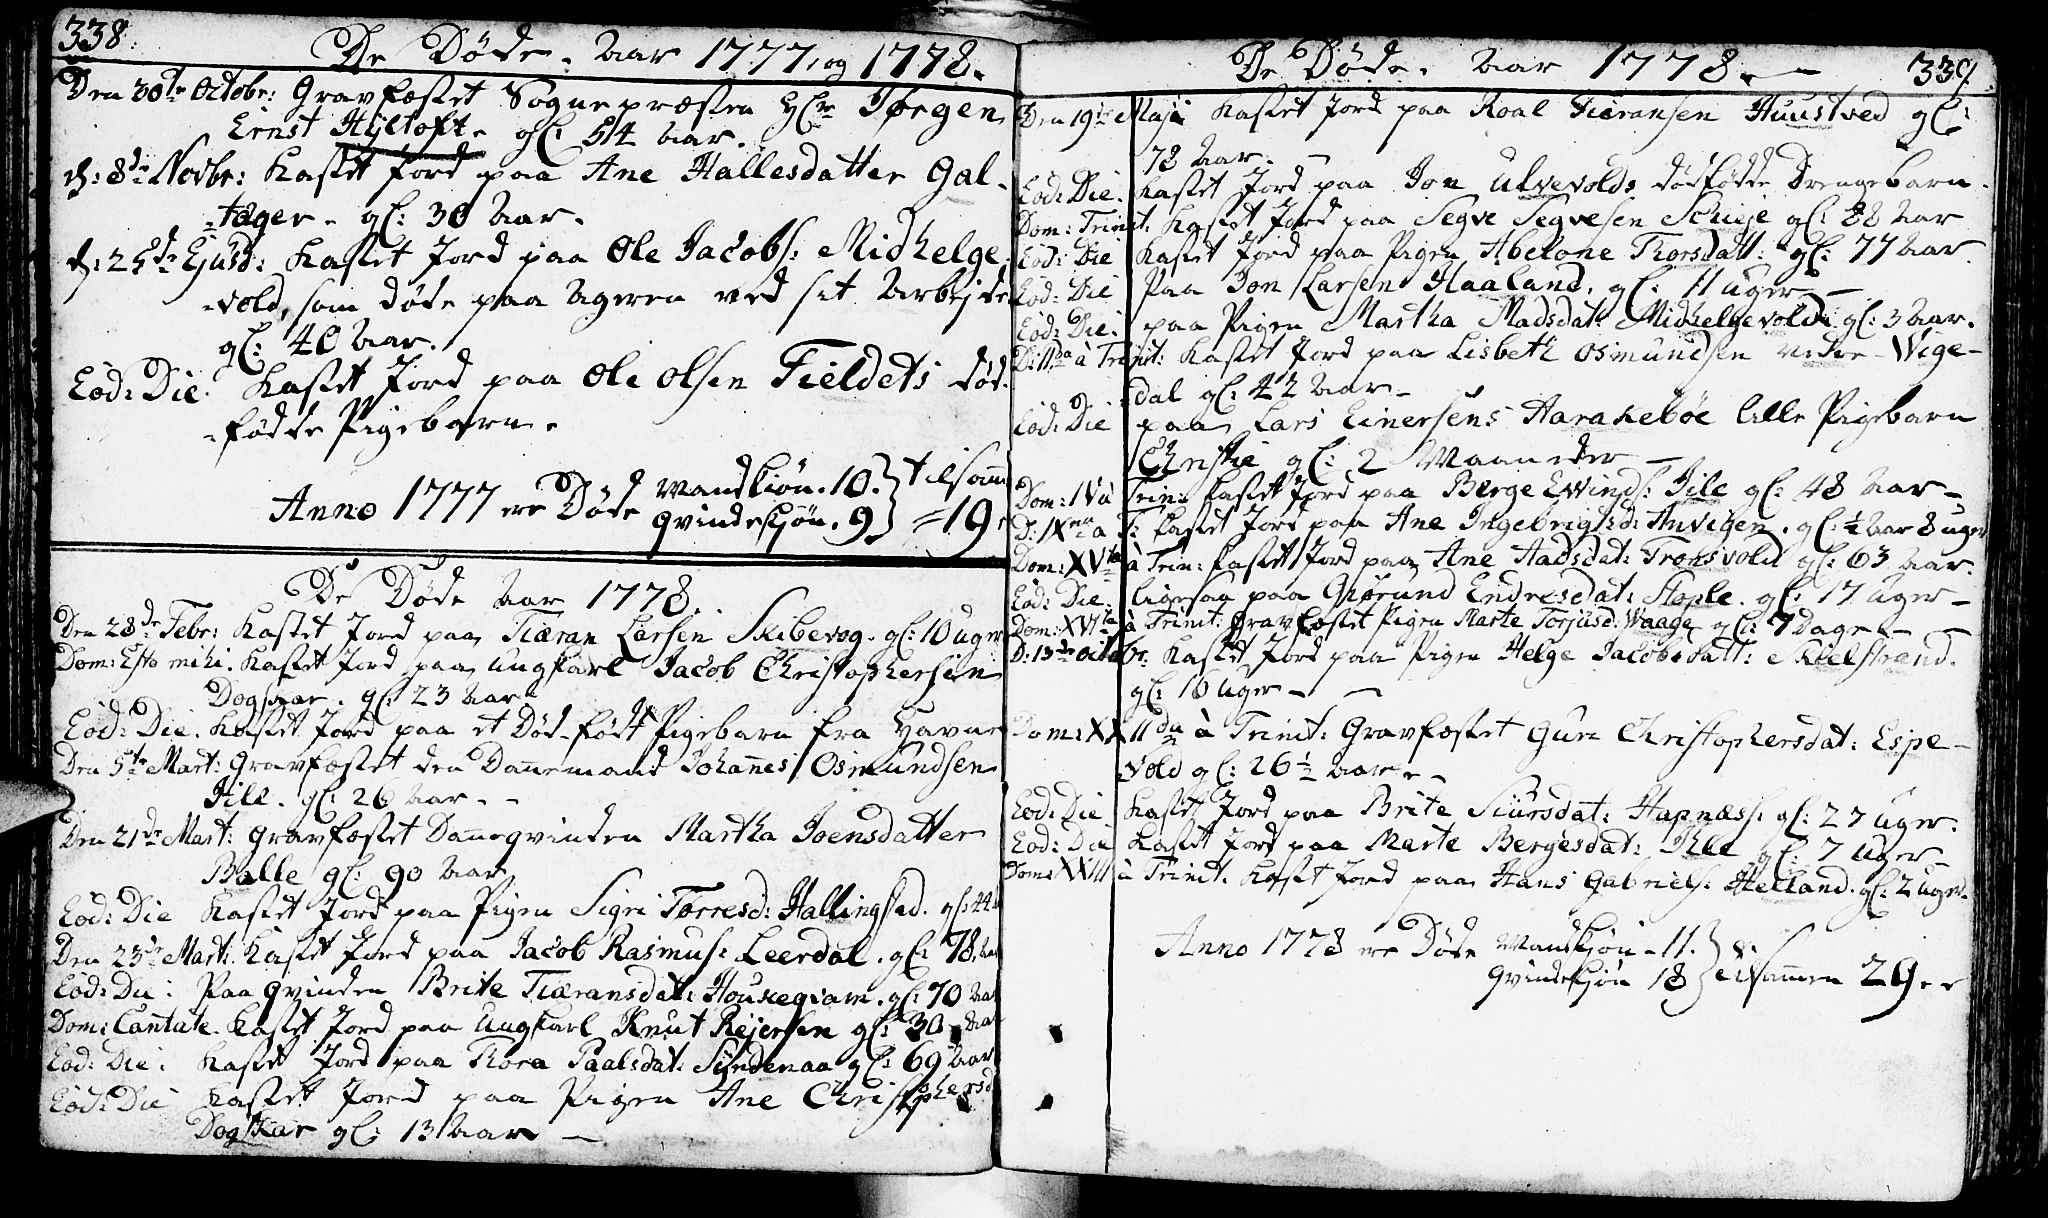 338.
De Døde. Aar 1777, og 1778.
Den 30te Octobr: Gravfæstet Sognepræsten Hr Jørgen
Ernst Hyltoft. gl: 54 Aar.
d: 8de Novbr: Kastet Jord paa Ane Hallesdatter Gal-
-tager. gl: 30 Aar.
d: 25de Ejusd: Kastet Jord paa Ole Jacobs: Midhelge-
-vold, som døde paa Ageren ved sit Arbejde
gl: 40 Aar.
Eod: Die. Kastet Jord paa Ole Olsen Fieldets død-
-fødde Pigebarn.
Anno 1777 ere Døde Mandkiøn. 10. } tilsamm
qvindekjøn. 9 } = 19.
De Døde Aar 1778.
Den 28de Febr: Kastet Jord paa Tiæran Larsen Skibevog. gl: 10 uger
Dom: Esto mihi. Kastet Jord paa ungkarl Jacob Christophersen
Dogskar. gl: 23 Aar
Eod: Die. Kastet Jord paa et Død-født Pigebarn fra Havne
Den 5te Mart: Gravfæstet den Dannemand Johannes Osmundsen
Jille. gl: 26 Aar. -
Den 21de Mart: Gravfæstet Danneqvinden Martha Joensdatter
Balle gl: 90 Aar
Eod: Die Kastet Jord paa Pigen Sigri Torresd: Hallingstad. gl: 44
Den 23de Mart: Kastet Jord paa Jacob Rasmus: Leerdal. gl: 78 Aar
Eod: Die: Paa qvinden Brite Tiæransdat: Houkegiam. gl: 70 Aar
Dom: Cantate. Kastet Jord paa Ungkarl Knut Rejersen gl: 30 Aar
Eod: Die: Kastet Jord paa Thora Paalsdat: Syndenaa gl: 69 Aar
Eod: Die Kastet Jord paa Pigen Ane Christophersd
Dogskar gl: 13 Aar -
De Døde. Aar 1778. -
339.
Den 19de Maji Kastet Jord paa Roal Tiæransen Huustved gl:
78 Aar. -
Eod: Die. Kastet Jord paa Jon Ulvevolds dødfødde Drengebarn.
Dom: Trinit: Kastet Jord paa Segve Segvesen Schieje gl: 88 Aar
Eod: Die Kastet Jord paa Pigen Abelone Thorsdatt: gl: 77 Aar.
Eod: Die Paa Jon Larsen Haaland. gl: 11 uger -
Eod: Die: paa Pigen Martha Madsdat: Midhelgevold gl: 3 Aar.
D: 11da à Trinit: Kastet Jord paa Lisbeth Osmundsen nedre- Vige-
-dal gl: 42 Aar -
Eod: Die paa Lars Einersens Aarakebøe lille Pigebarn
Christie gl: 2 Maaneder -
Dom: IV à Trin: Kastet Jord paa Berge Ewinds: Jile gl: 48 Aar -
D: IXna à T: Kastet Jord paa Ane Ingebrigtsd: Anvigen. gl: ½ Aar 8 uger
Dom: XVta à Trin: Kastet Jord paa Ane Aadsdat: Tronsvold gl: 63 Aar.
Eod: Die. ligesaa paa Giørund Endresdat: Stople. gl: 17 Uger -
Dom: XVIta à Trinit: Gravfæstet Pigen Marte Torjusd: Waage gl: 7 Dage -
D: 13de Octobr: Kastet Jord paa Pigen Helge Jacobsdatt: Skielstrand.
gl: 16 Uger - -
Dom: XXIIda à Trinit: Gravfæstet Guri Christophersdat: Espe-
vold gl: 26 ½ Aar. -
Eod: Die Kastet Jord paa Brite Siursdat: Hapnæss: gl: 27 Uger.
Eod: Die Kastet Jord paa Marte Bergesdat: Ihle gl: 7 uger -
Dom: XXIII à Trinit. Kastet Jord paa Hans Gabriels: Helland. gl: 2 uger.
Anno 1778 ere Døde Mandkjøn - 11. }
qvindekjøn 18 } tilsammen 29.